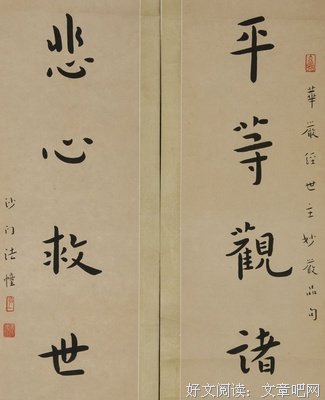 華嚴經世主妙嚴品句
平等觀諸
悲心救世
沙门法幢
好文阅读：文章吧网